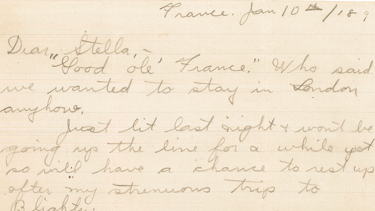 France. Jan 10th/18
Dear Stella,-
"Good ole' France." Who said
we wanted to stay in London
anyhow.
Just lit last night & won't be
going up the line for a while yet
so will have a chance to rest up
after "my strenuous trip to
Blighty.